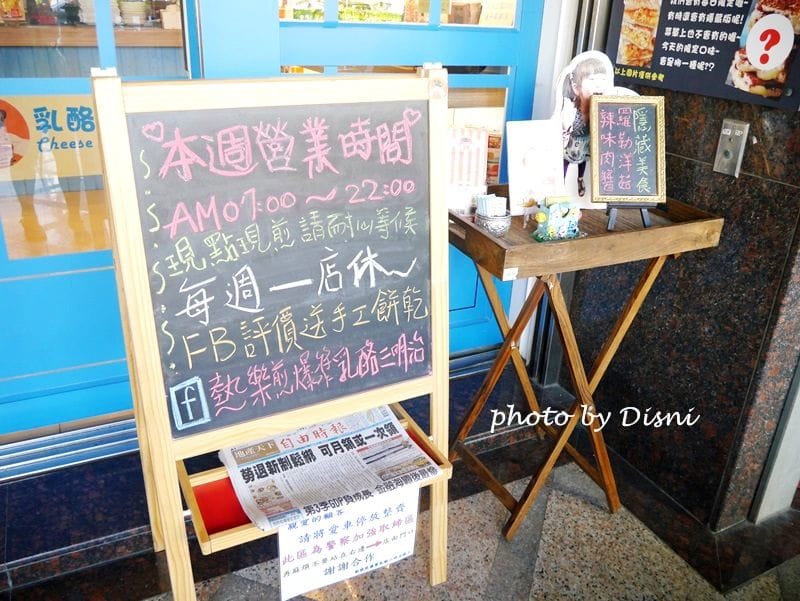 乳酪
Cheese
♡本週營業時間♡
AM07:00～22:00
現點現煎請耐心等候
每週一店休～
FB評價送手工餅乾
f 熱樂煎爆漿乳酪三明治
隱藏美食
羅勒洋菇
辣味肉醬
今天的限定口味~
?
地產天下
自由時報
勞退新制鬆綁 可月領或一次領
親愛的顧客
請將愛車停放整齊
此區為警察加強取締區
謝謝合作
photo by Disni